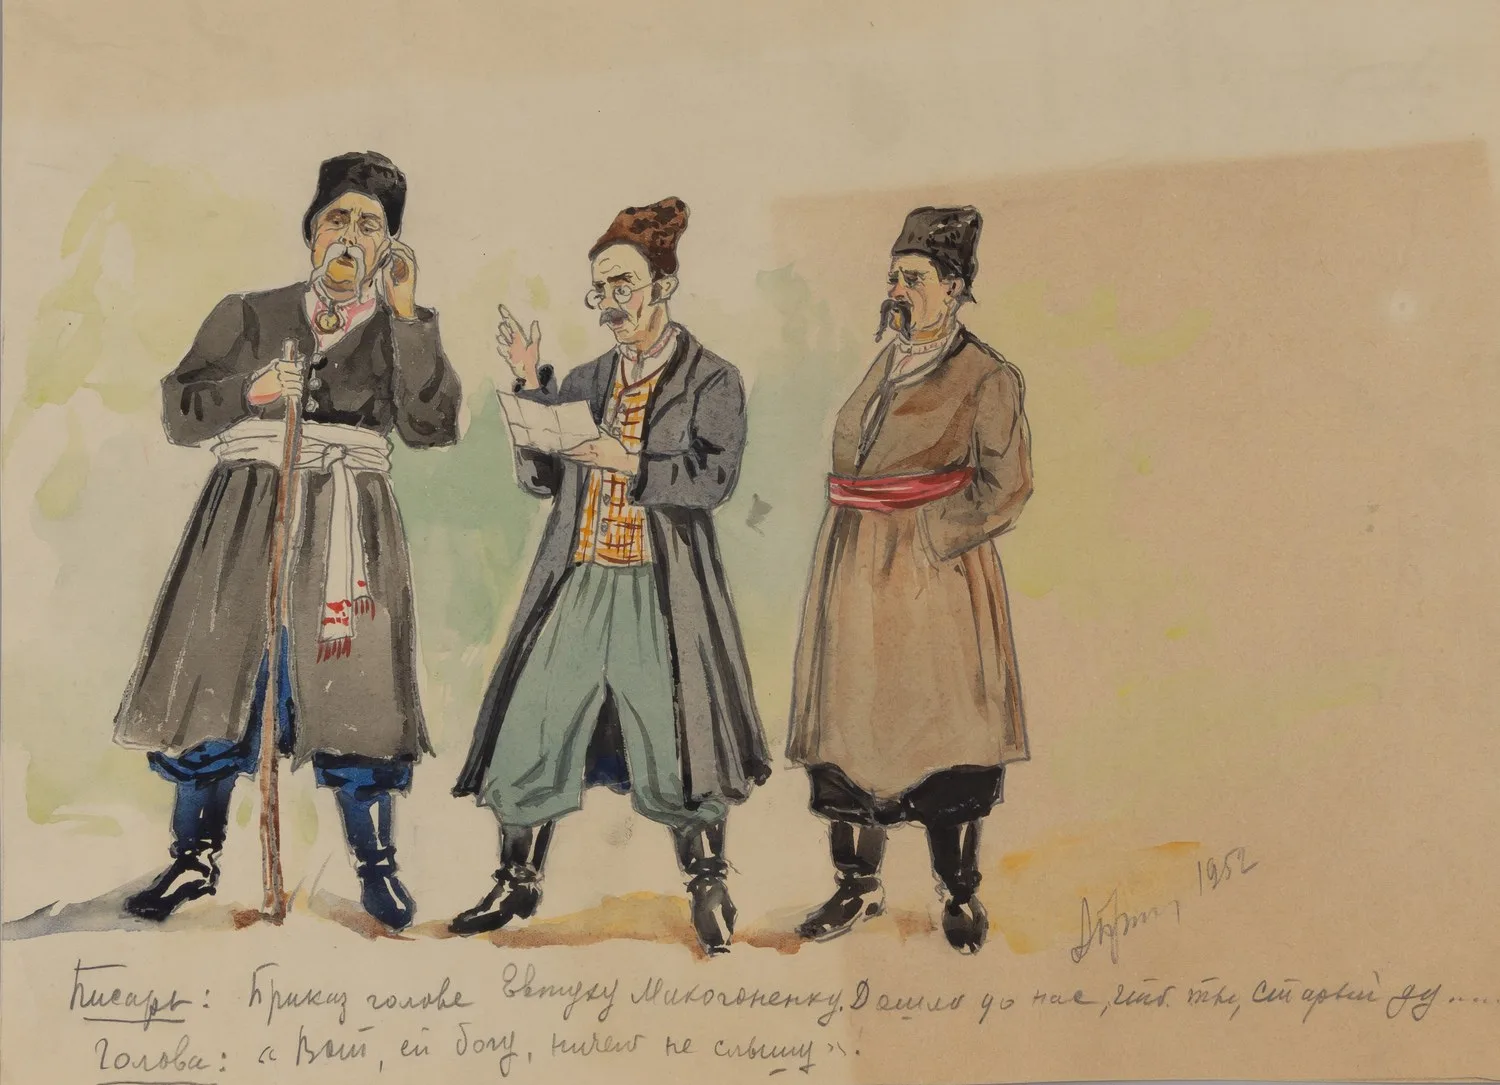 1952
Писарь: Приказ голове Евтуху Макогоненку. Дошло до нас, что ты, старый ду.....
Голова: «Вот, ей богу, ничего не слышу»!